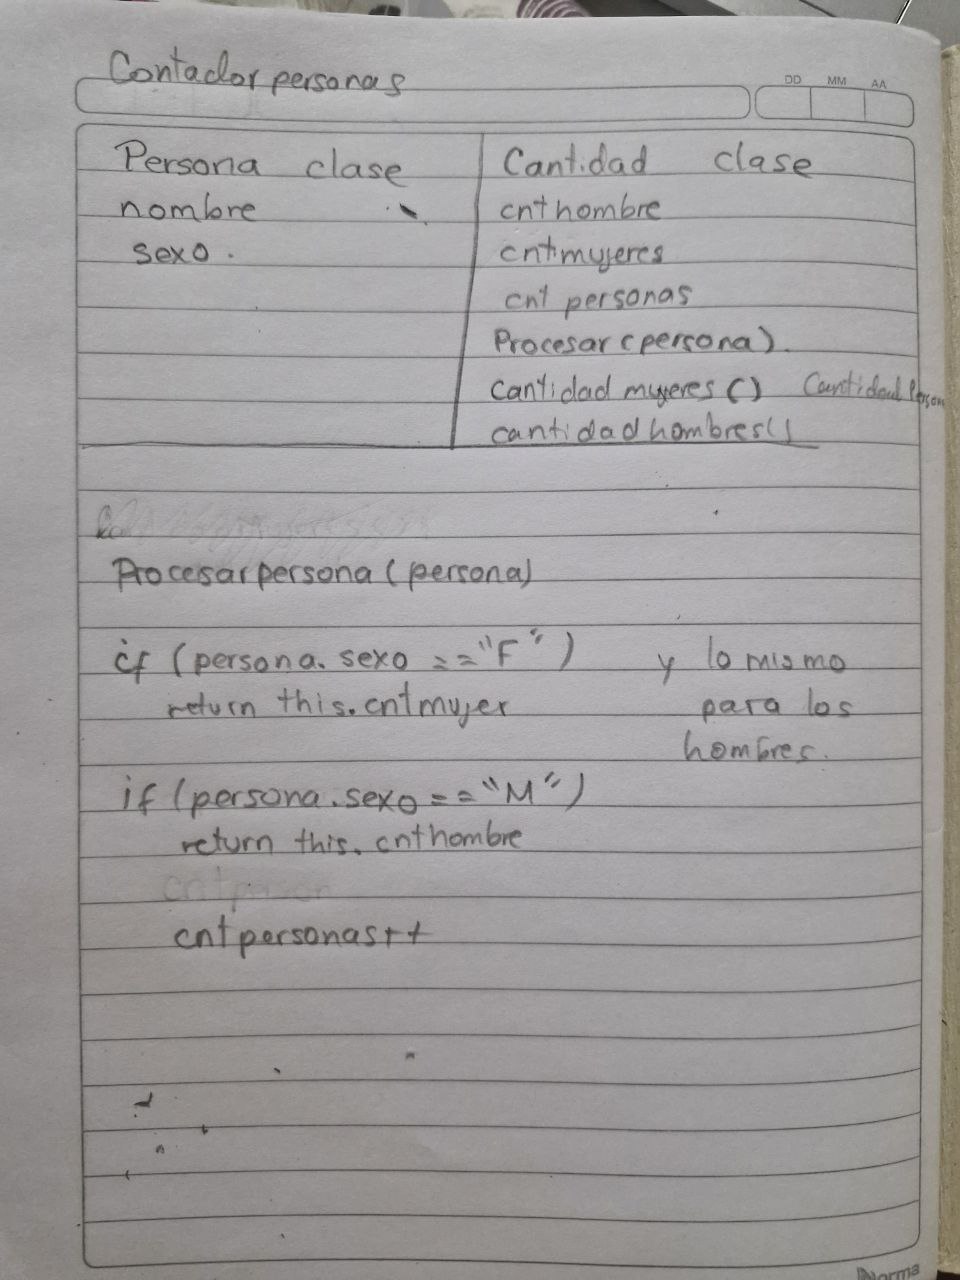 Contador personas
DD MM AA
Persona clase
nombre
sexo.
Cantidad clase
cnthombre
cntmujeres
cnt personas
Procesar (persona).
Cantidad mujeres () Cantidad Person
cantidad hombres()
Procesar persona (persona)
if (persona. sexo == "F")
return this.cntmujer
y lo mismo
para los
hombres.
if (persona.sexo == "M")
return this. cnthombre
cntperson
cntpersonas++
Norma